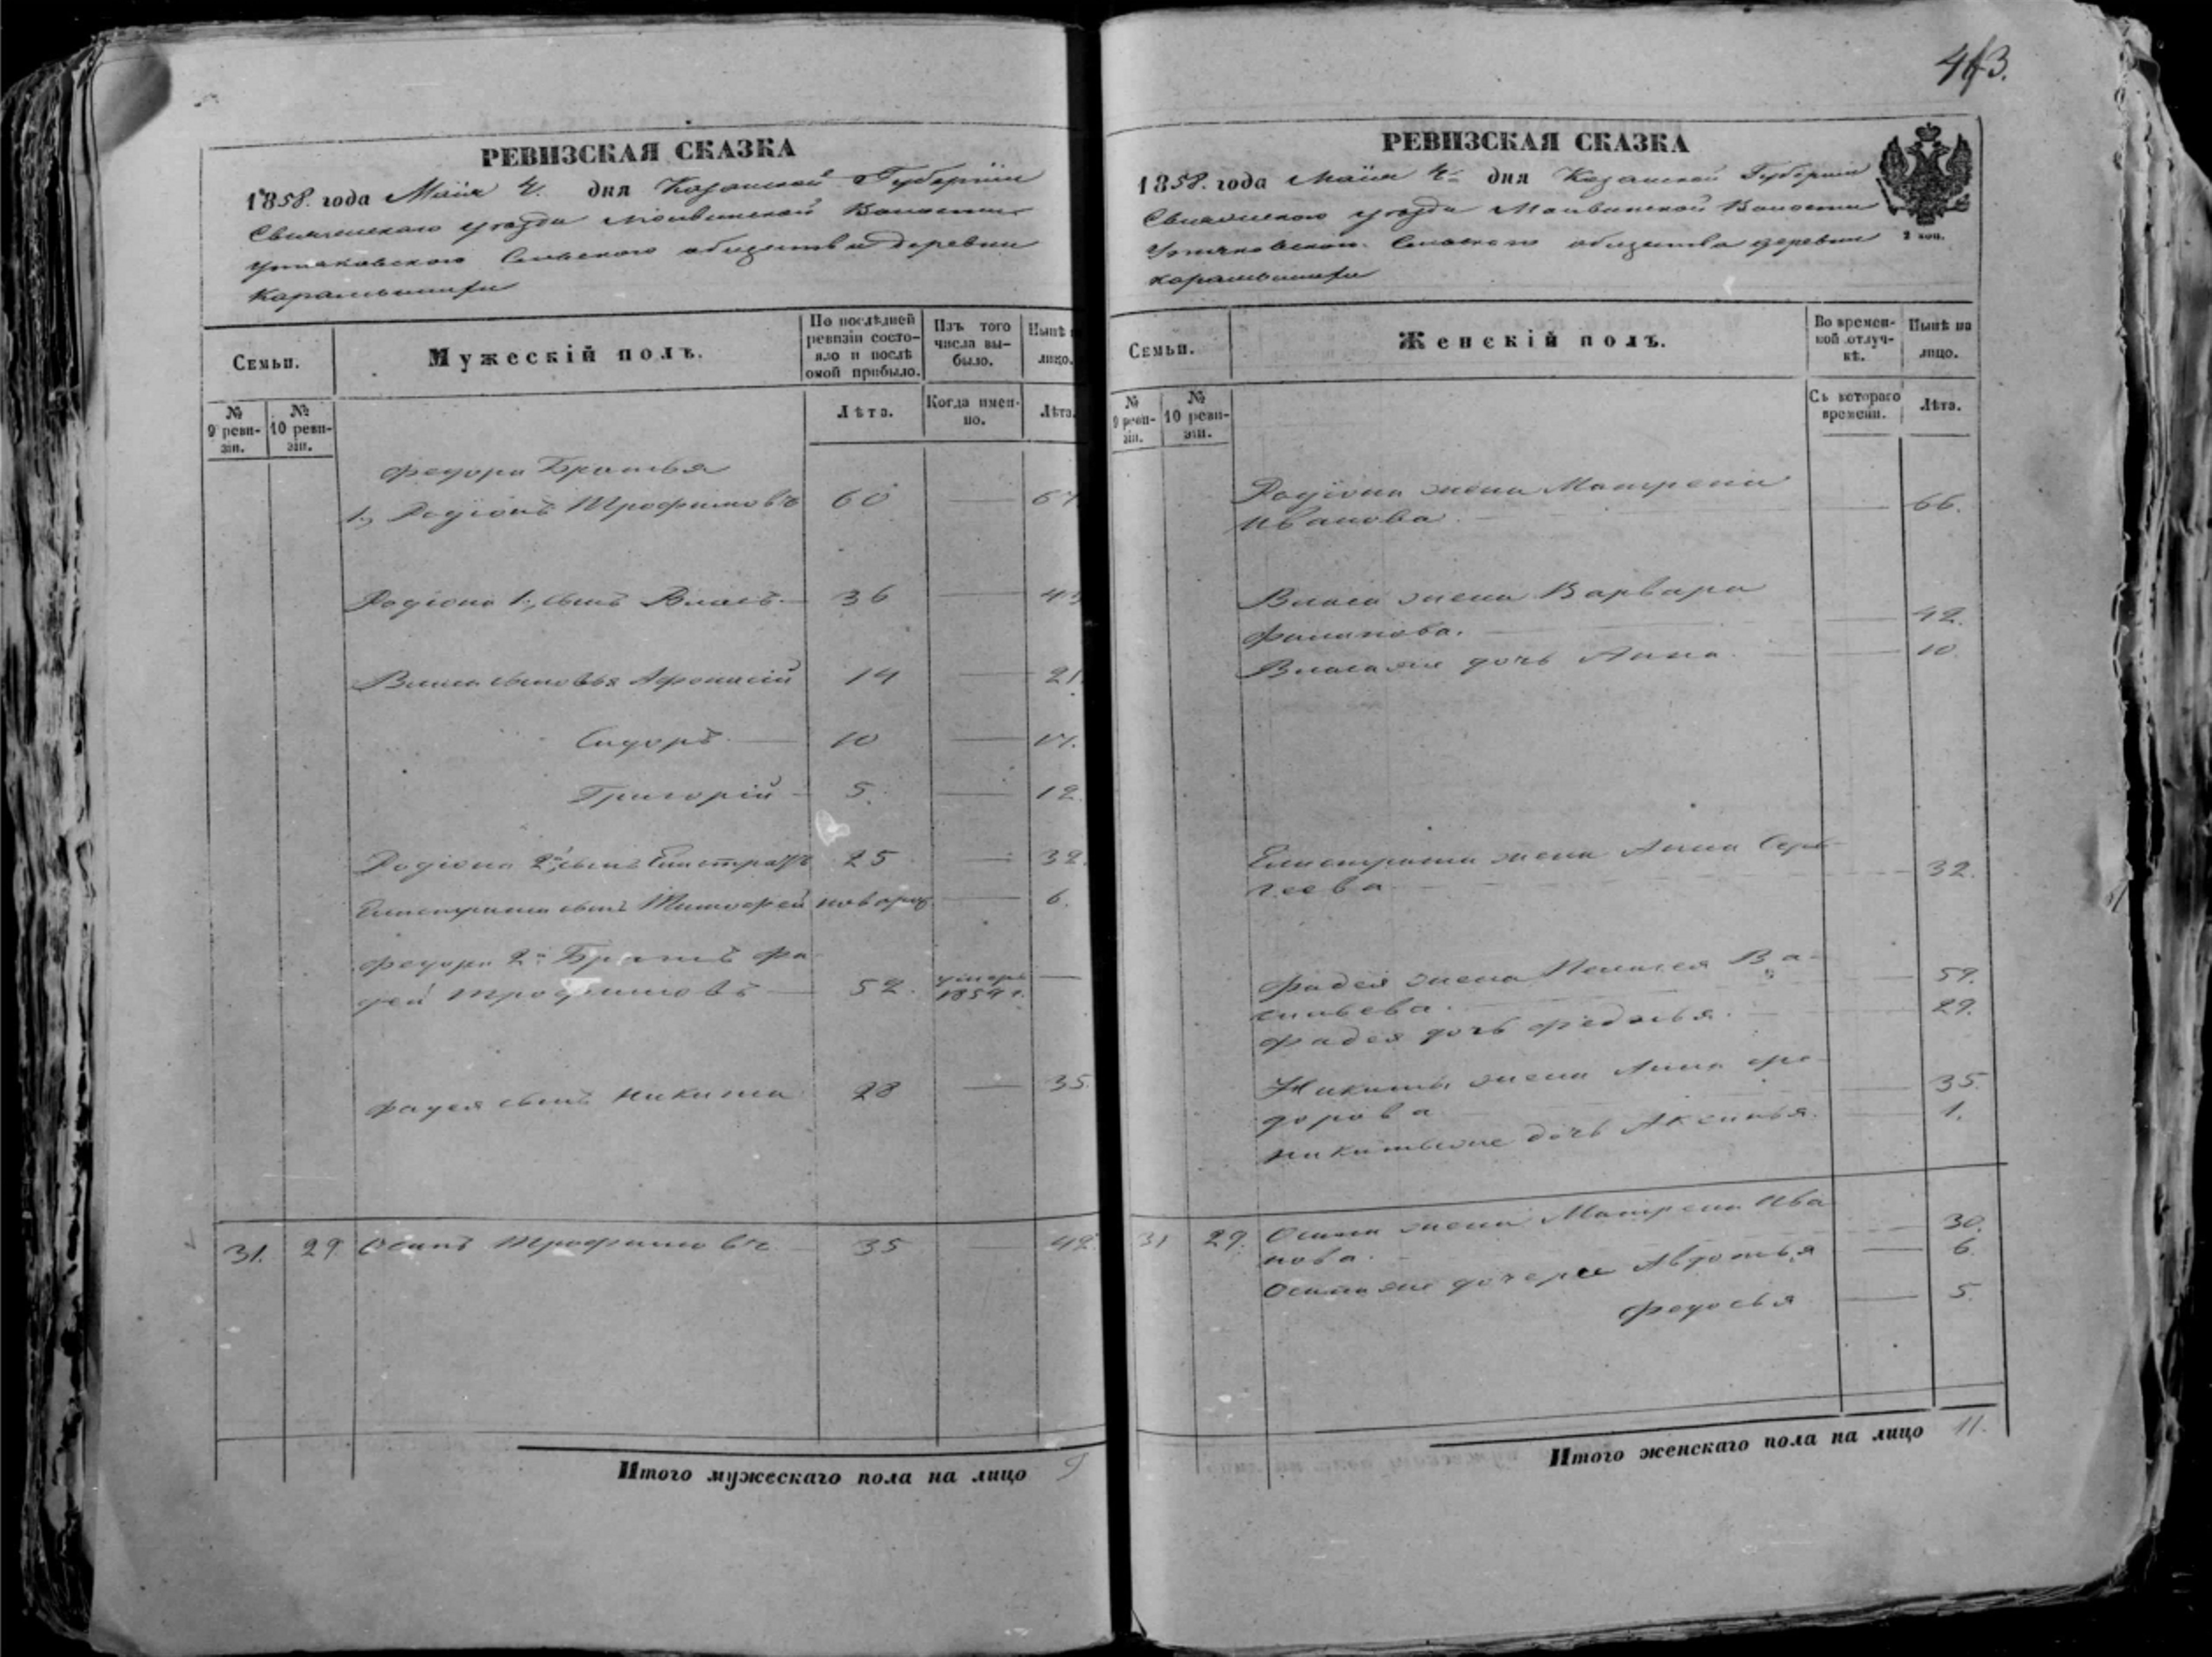 413.
РЕВИЗСКАЯ СКАЗКА
1858. года Маія 4. дня Казанской Губерніи
Свіяжскаго уѣзда Молвинской Волости
Утяковскаго Сельскаго общества деревни
Карамышихи
Семьи.
Мужескій полъ.
По послѣдней ревизіи состояло и послѣ оной прибыло.
Изъ того числа выбыло.
Нынѣ на лицо.
№ 9 ревизіи.
№ 10 ревизіи.
Лѣта.
Когда именно.
Лѣта.
Федора Братья
1, Родіонъ Трофимовъ 60 — 67
Родіона 1, сынъ Власъ — 36 — 43
Власа сыновья Афонасій 14 — 21.
Сидоръ — 10 — 17.
Григорій — 5. — 12.
Родіона 2й, сынъ Елистратъ 25 — 32.
Елистрата сынъ Тимофей новорож — 6.
Федора 2й Братъ Фа-
дей Трофимовъ — 52. умеръ 1854 г. —
Фадея сынъ Никита 28 — 35.
31. 29. Осипъ Трофимовъ — 35 — 42.
Итого мужескаго пола на лицо 9
РЕВИЗСКАЯ СКАЗКА
1858. года Маія 4 дня Казанской Губерніи
Свіяжскаго уѣзда Молвинской Волости
Утяковскаго Сельскаго общества деревни
Карамышихи
2 коп.
Семьи.
Женскій полъ.
Во временной отлучкѣ.
Нынѣ на лицо.
№ 9 ревизіи.
№ 10 ревизіи.
Съ котораго времени.
Лѣта.
Родіона жена Матрена
Иванова. — 66.
Власа жена Варвара
Филипова. — 42.
Власа же дочь Анна. — 10.
Елистрата жена Анна Сер-
геева — 32.
Фадея жена Пелагея Ва-
сильева. — 59.
Фадея дочь Федосья. — 29.
Никиты жена Анна Фе-
дорова — 35.
Никиты же дочь Аксинья. 1.
31 29. Осипа жена Матрена Ива
нова. — 30.
Осипа же дочери Авдотья — 6.
Федосья — 5.
Итого женскаго пола на лицо 11.